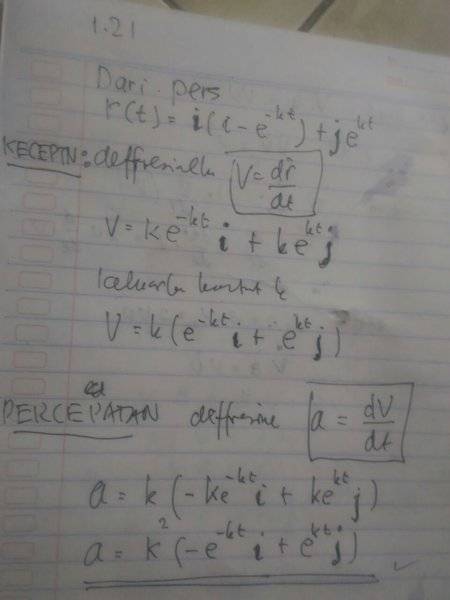 1.21
Dari pers
r(t) = i(1-e^-kt) + je^kt
KECEPTN: deffresialkn V = dr/dt
V = ke^-kt i + ke^kt j
V = k(e^-kt i + e^kt j)
PERCEPATAN a = dV/dt
a = k(-ke^-kt i + ke^kt j)
a = k^2(-e^-kt i + e^kt j)